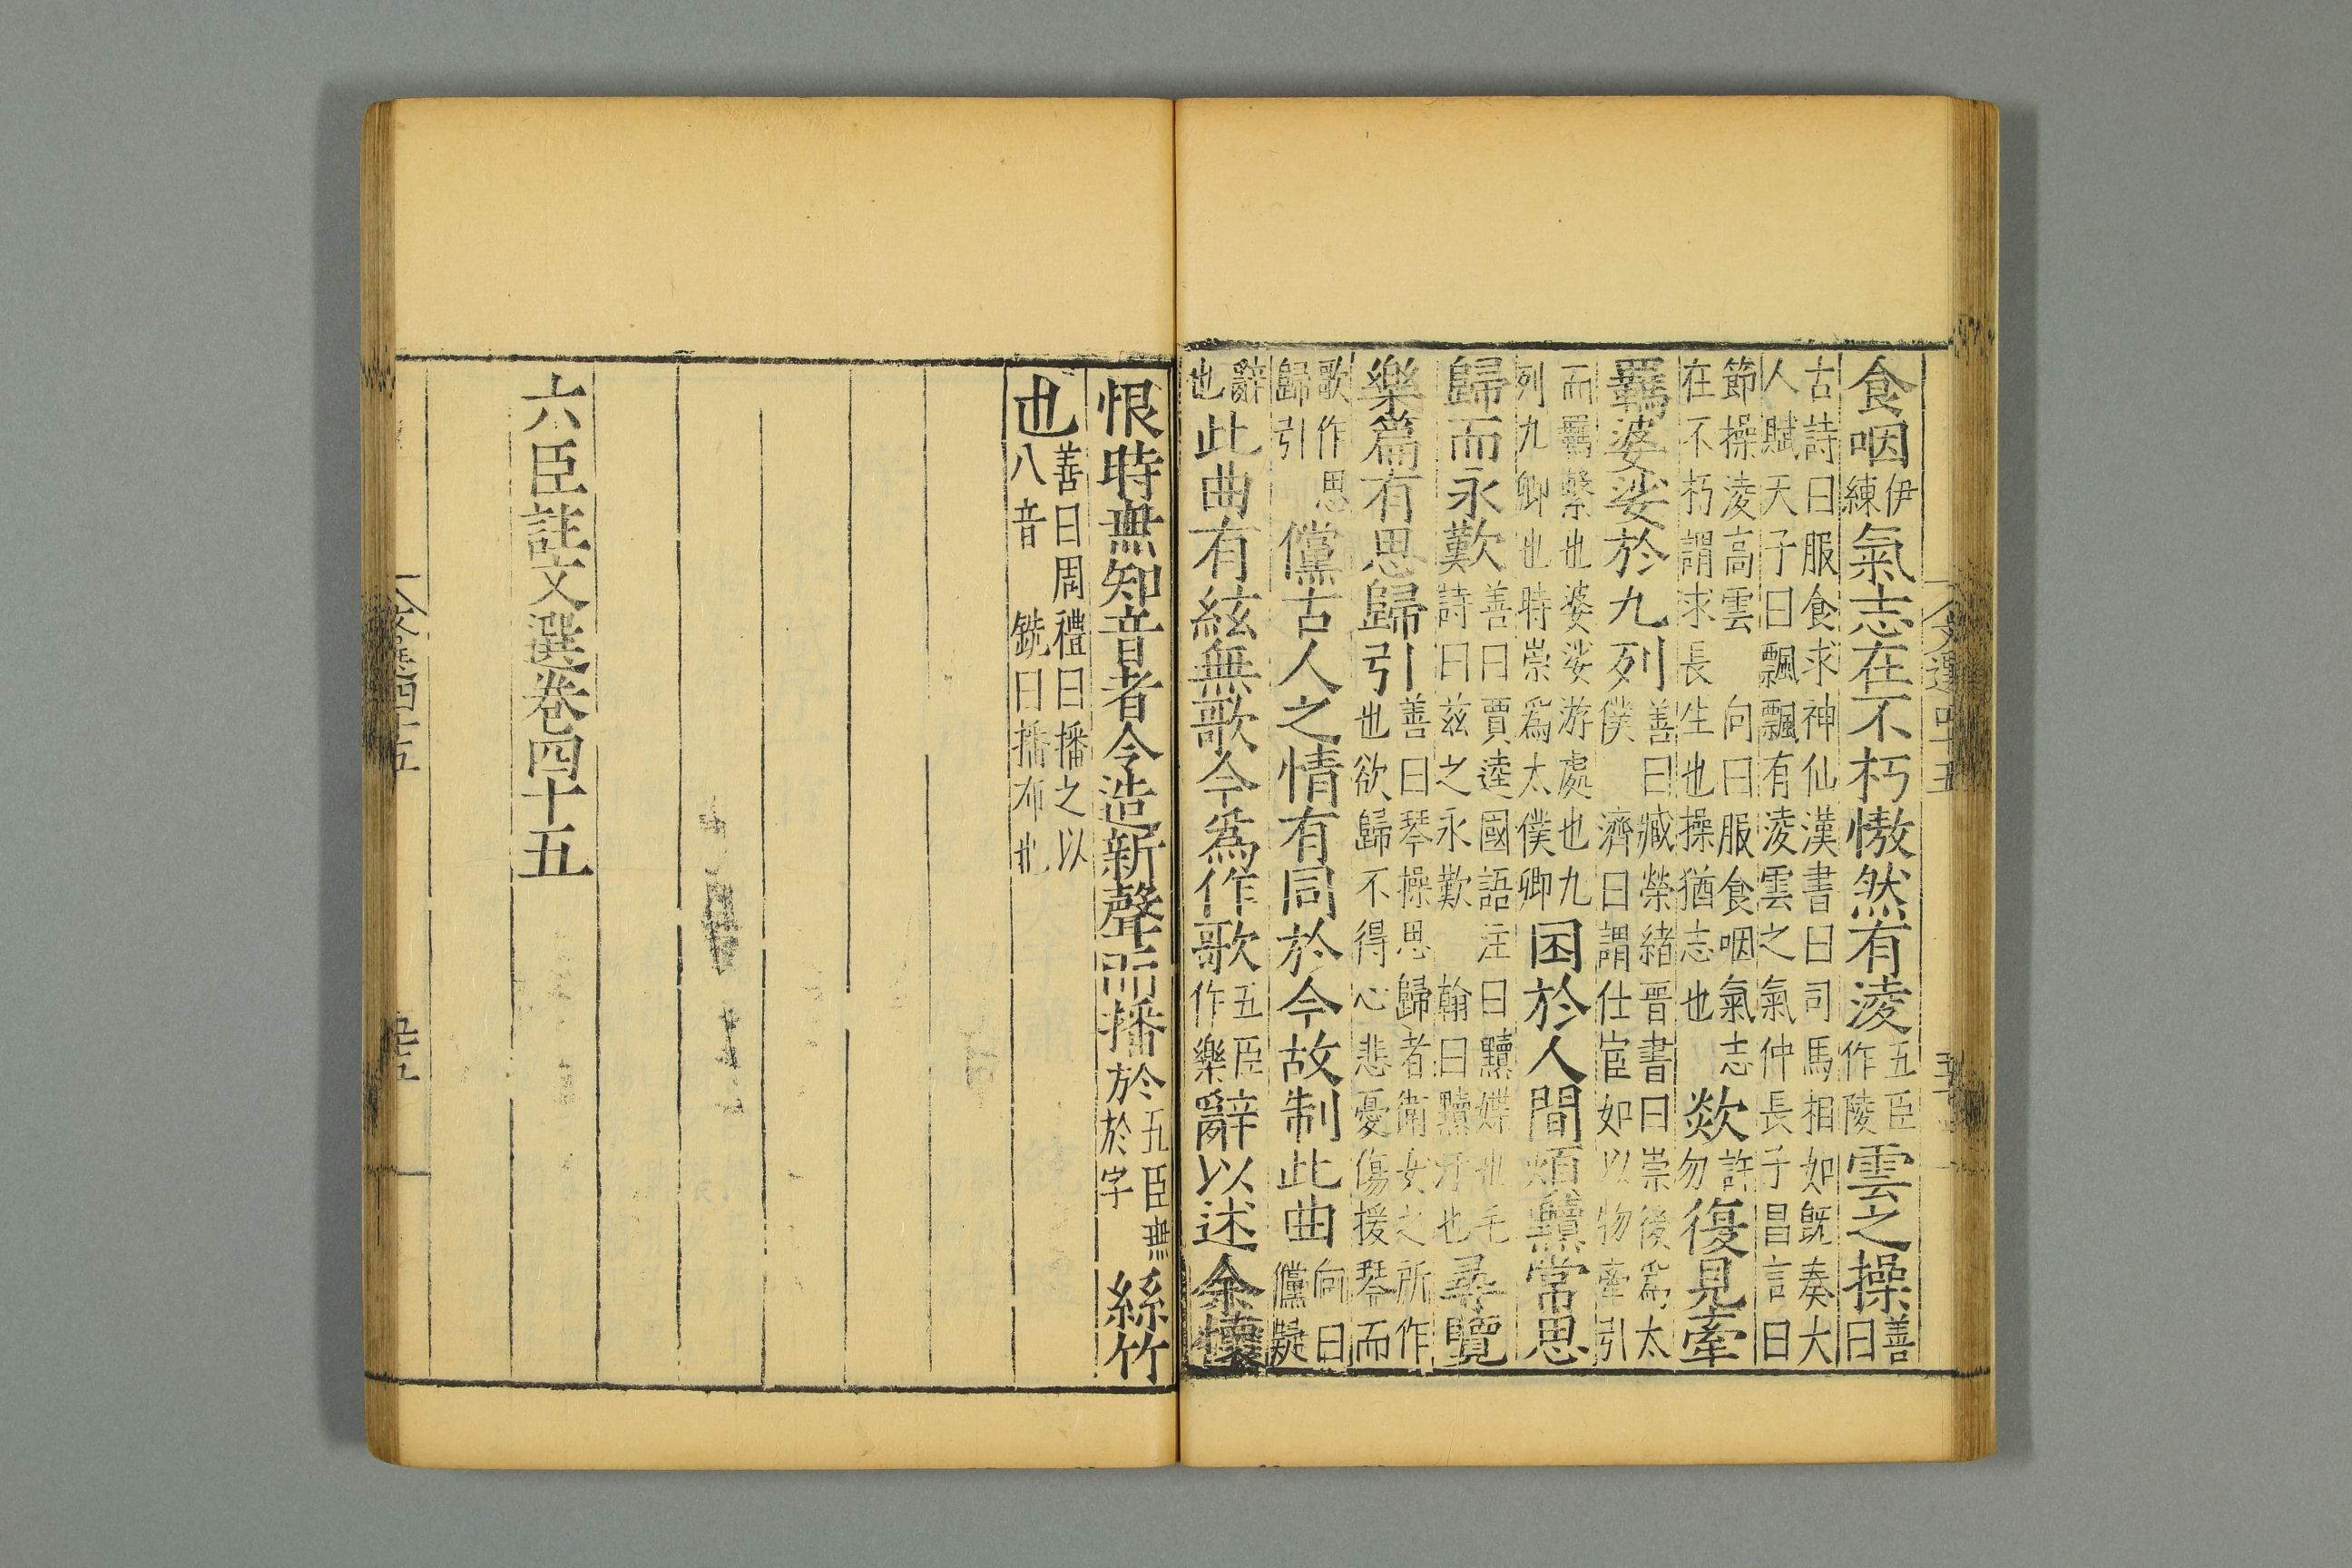 食咽伊練氣志在不朽慠然有淩五臣作陵雲之操善曰
古詩曰服食求神仙漢書曰司馬相如旣奏大
人賦天子曰飄飄有淩雲之氣仲長子昌言曰
節操淩高雲 向曰服食咽氣志
在不朽謂求長生也操猶志也 歘許勿復見牽
羈婆娑於九列善曰臧榮緒晋書曰崇後爲太僕 濟曰謂仕宦如以物牽引
而羈繫也婆娑游處也九
列九卿也時崇爲太僕卿 困於人間煩黷常思
歸而永歎善曰賈逵國語注曰黷媟也毛詩曰玆之永歎 翰曰黷汙也尋覽
樂篇有思歸引善曰琴操思歸者衛女之所作也欲歸不得心悲憂傷援琴而
歌作思歸引 儻古人之情有同於今故制此曲向曰儻疑
辭也此曲有絃無歌今爲作歌五臣作樂辭以述余懷
恨時無知音者令造新聲而播於五臣無於字絲竹
也善曰周禮曰播之以八音 銑曰播布也
六臣註文選卷四十五